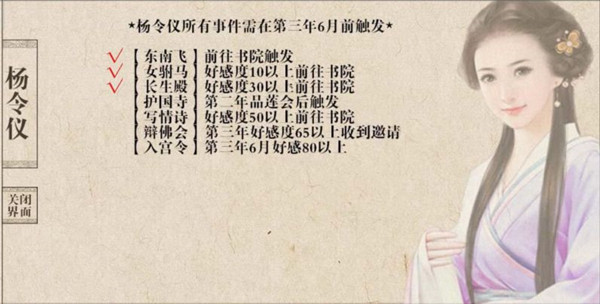 ★杨令仪所有事件需在第三年6月前触发★
杨令仪
【东南飞】前往书院触发
【女驸马】好感度10以上前往书院
【长生殿】好感度30以上前往书院
【护国寺】第二年品莲会后触发
【写情诗】好感度50以上前往书院
【辩佛会】第三年好感度65以上收到邀请
【入宫令】第三年6月好感80以上
关闭
界面